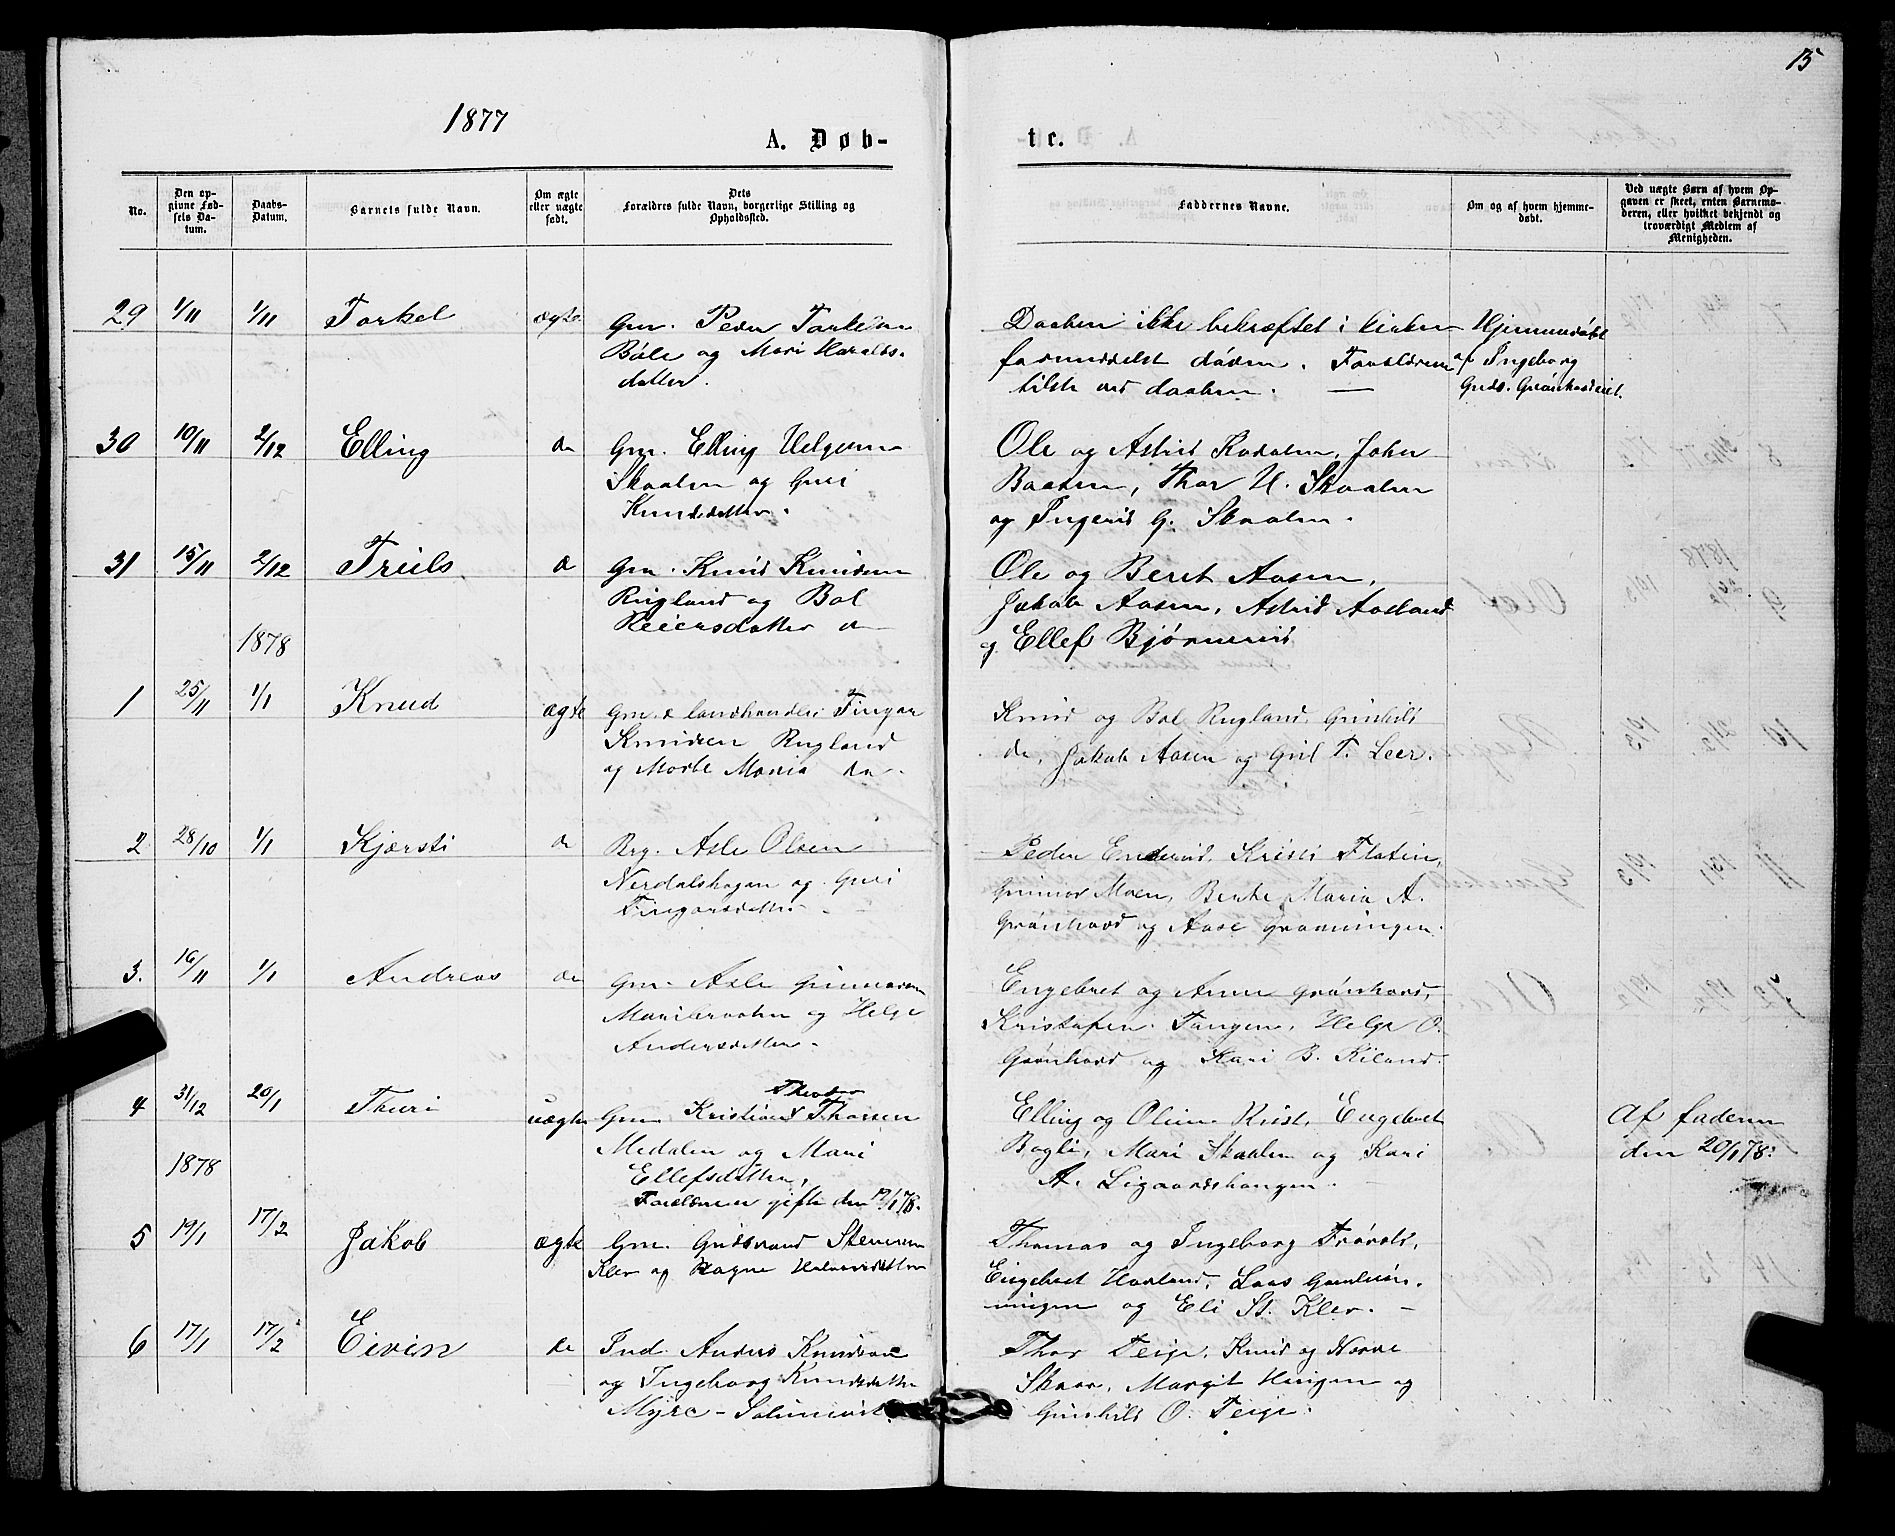 15
1877
A. Døb-
te.
No.
Den op-
givne Fød-
sels Da-
tum.
Daabs-
Datum.
Barnets fulde Navn.
Om ægte
eller uægte
født.
Dets
Forældres fulde Navn, borgerlige Stilling og
Opholdssted.
Faddernes Navne.
Om og af hvem hjemme-
døbt.
Ved uægte Børn af hvem Op-
gaven er skeet, enten Barnemo-
deren, eller hvilket bekjendt og
troværdigt Medlem af
Menigheden.
29 1/11 1/11 Torkel ægte
Gm. Peder Torkelsen
Bøle og Mari Haralds-
datter.
Daaben ikke bekræftet i kirken
formedelst døden. Forældrene
tilst. ved daaben. —
Hjemmedøbt
af Ingeborg
Guds. Grønhovdeiet.
30 10/11 2/12 Elling do
Gm. Elling Helgesen
Skaalen og Guri
Knudsdatter.
Ole og Astrid John
Baasen, Thor H. Skaalen
og Ingerid G. Skaalen.
31 15/11 2/12 Truls do
Gm. Knud Knudsen
Rugland og Bol
Reiersdatter do
Ole og Beret Aasen,
Jakob Aasen, Astrid Aasland
og Ellef Bjørnerud
1878
1 25/11 1/1 Knud ægte
Gm. & landhandler Fingar
Knudsen Rugland
og Marte Maria do.
Knud og Bol Rugland, Gunhild
do, Jakob Aasen og Gul T. Leer.
2 28/10 1/1 Kjærsti do
Brg. Asle Olsen
Nerdalshagen og Guri
Fingarsdatter.
Peder Enderud, Kristi Flatin,
Gunnar Moen, Berthe Maria A.
Grønhovd og Aase Grønningen.
3. 16/11 1/1 Andreas do
Gm. Asle Gunnarsen
og Helge
Andersdatter.
Engebret og Anne Grønhovd,
Kristofer Tangen, Helge O.
Grønhovd og Kari B. Kiland.
4 31/12 20/1 Thuri uægte
Gm Kristian Thorsen
Medalen og Mari
Ellefsdatter,
Forældrene gifte den 19/1 78.
Elling og Oline Engebret
Bøgli, Mari Skaalen og Kari
A. Ligaardshaugen.
Af faderen
den 20/1 78.
1878
5 19/1 17/2 Jakob ægte
Gm. Gudbrand Stenersen
Klev og Ragne Halvorsdatter
Thomas og Ingeborg Frøvold,
Engebret Hovland, Lars
og Eli St. Klev. —
6 17/1 17/2 Eivin do
Ind. Anders Knudsen
og Ingeborg Knudsdatter
Myre-
Thor Teige, Knud og
Skaar, Margit Haugen og
Gunhild O. Teige.